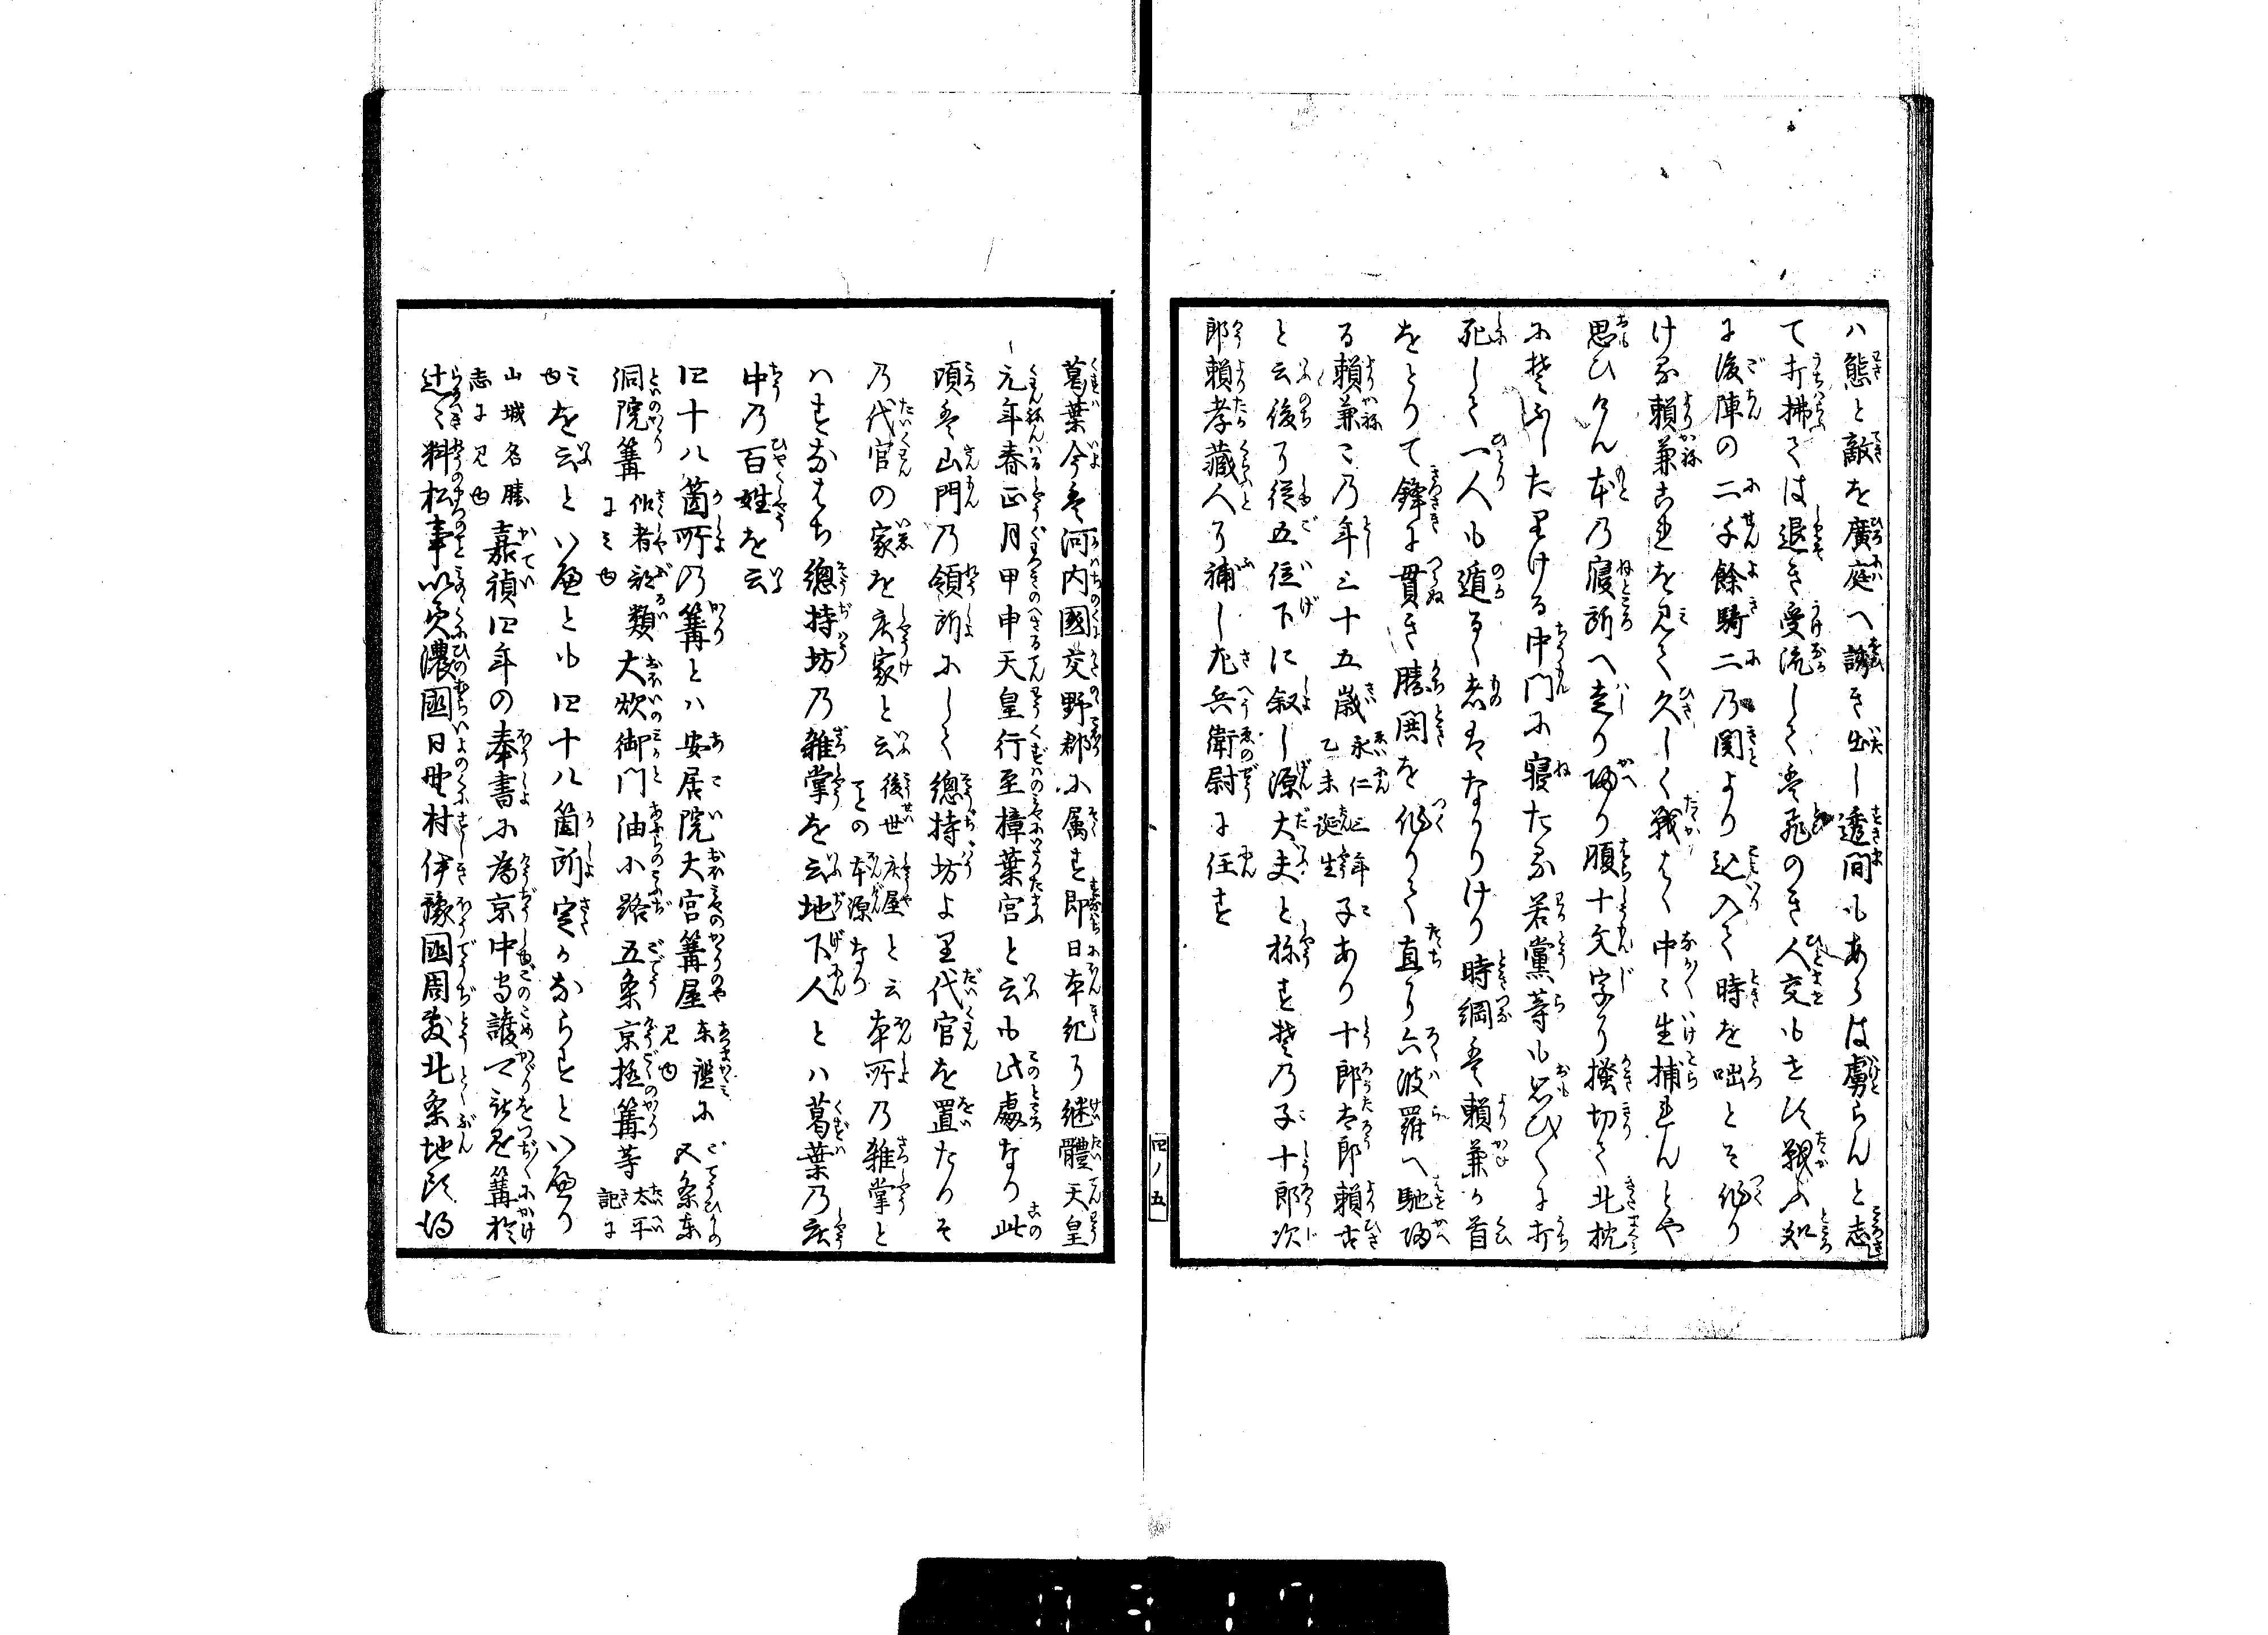 ハ態と敵を廣庭へ誘き出し透間もあらは虜らんと志
て打拂ては退き受流しては飛のき人交もせす戦ふ処
に後陣の二千餘騎二の関より込入て時を咄とそ作り
ける頼兼是を見て久しく戦はゝ中々生捕れんとや
思ひけん本乃寝所へ走り帰り腹十文字り掻切て北枕
に臥したりける中門に寝たる若黨等も思ひ〳〵に打
死して一人も遁るゝ者はなかりけり時綱は頼兼か首
をとりて鋒に貫き勝閧を作りて直り六波羅へ馳帰
る頼兼この年三十五歳永仁三年乙未誕生子あり十郎太郎頼古
と云後り従五位下に叙し源大夫と称す其乃子十郎次
郎頼孝藏人り補し左兵衛尉に任す
四ノ五
葛葉今は河内國交野郡に属す即日本紀り継體天皇
元年春正月甲申天皇行至樟葉宮と云も此處なり此
頃は山門乃領所にして總持坊より代官を置たりそ
乃代官の家を庄家と云後世庄屋と云ことの本源なり本所乃雜掌と
ハすなはち總持坊乃雜掌を云地下人とハ葛葉乃庄
中乃百姓を云
四十八箇所乃篝とハ安居院大宮篝屋東鑑に見ゆ五条東
洞院篝作者部類にみゆ大炊御門油小路五条京極篝等太平記に
みゆを云といへとも四十八箇所定かならすといへり
山城名勝志に見ゆ嘉禎四年の奉書に為京中守護可被居篝於
辻々料松事以美濃國日野村伊豫國周敷北条地頭得